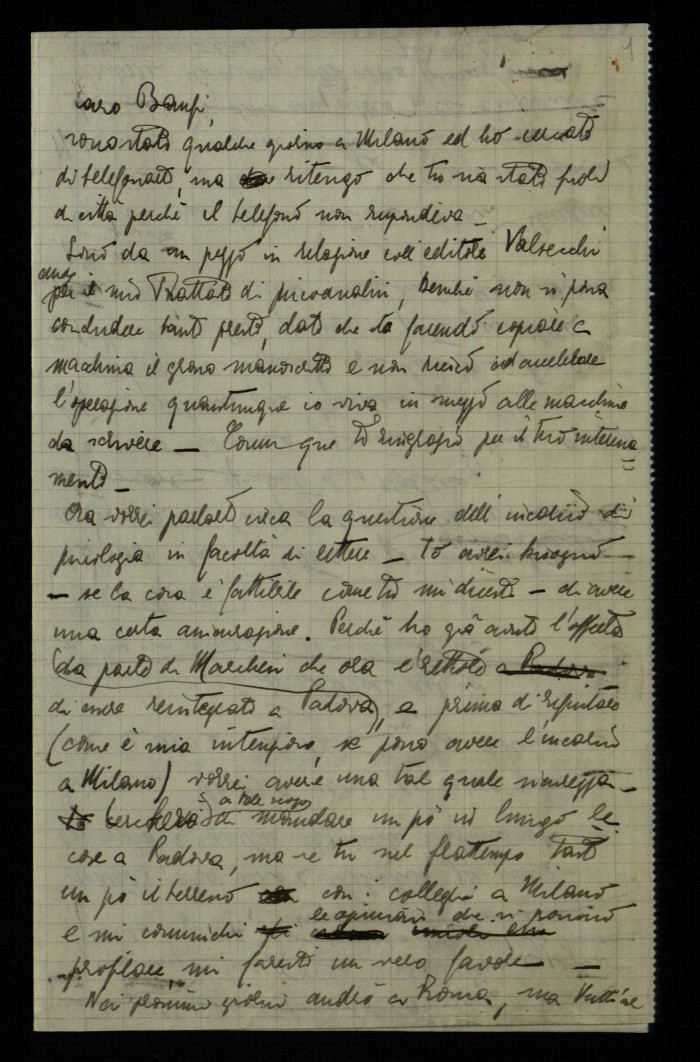 1
caro Banfi,
sono stato qualche giorno a Milano ed ho cercato
di telefonarti, ma ritengo che tu sia stato fuori
di città perchè il telefono non rispondeva –
Sono da un pezzo in relazione coll'editore Valsecchi
per il mio Trattato di psicoanalisi, benchè non si possa
concludere tanto presto, dato che sto facendo copiare a
macchina il grosso manoscritto e non riesco ad accelerare
l'operazione quantunque io viva in mezzo alle macchine
da scrivere – Comunque ti ringrazio per il tuo interessa
mento –
Ora vorrei parlarti circa la questione dell'incarico di
psicologia in facoltà di lettere – Io avrei bisogno –
– se la cosa è fattibile come tu mi dicesti – di avere
una certa assicurazione. Perchè ho già avuto l'offerta
(da parte di Marchesi che ora è rettore a Padova
di essere reintegrato a Padova), e prima di rifiutare
(come è mia intenzione, se posso avere l'incarico
a Milano) vorrei avere una tal quale sicurezza –
cercherò a tale scopo di mandare un pò in lungo le
cose a Padova, ma se tu nel frattempo tasti
un pò il terreno con i colleghi a Milano
e mi comunichi le opinioni che si possono
profilare mi faresti un vero favore –
Nei prossimi giorni andrò a Roma, ma